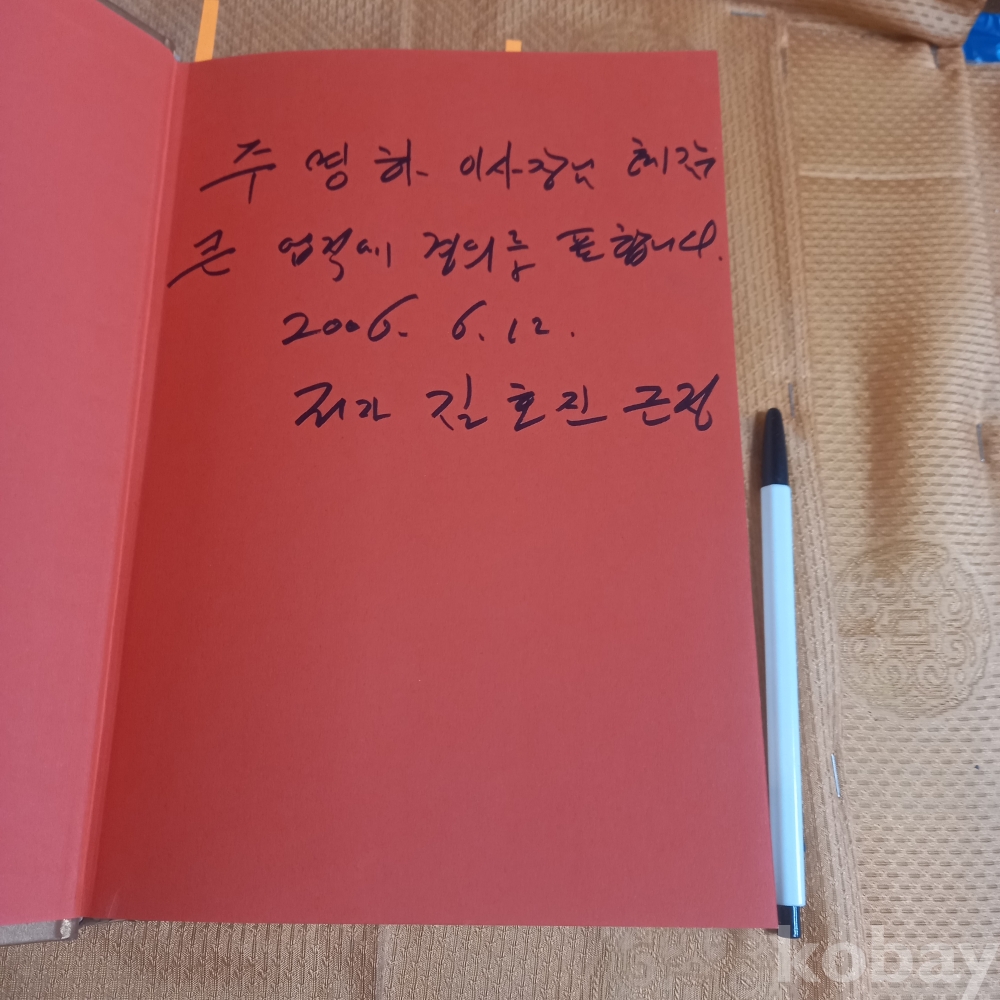 주 명 하 이사장님 혜감
큰 업적에 경의를 표합니다.
2006. 6. 12.
저자 김 호 진 근정
kobay